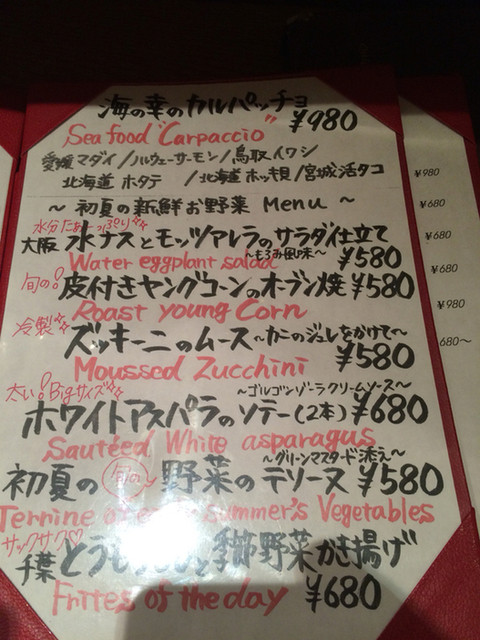 海の幸のカルパッチョ
Sea food "Carpaccio" ¥980
愛媛マダイ/ノルウェーサーモン/鳥取イワシ
北海道 ホタテ /北海道 ホッキ貝/宮城活タコ
～ 初夏の新鮮お野菜 Menu ～
水分たぁーっぷり
大阪 水ナスとモッツァレラのサラダ仕立て
～もろみ風味～
Water eggplant salad ¥580
旬の! 皮付きヤングコーンのオーブン焼 ¥580
Roast young Corn
冷製 ズッキーニのムース ～カニのジュレをかけて～
Moussed Zucchini ¥580
太い!Bigサイズ ～ゴルゴンゾーラクリームソース～
ホワイトアスパラのソテー(2本) ¥680
Sautéed White asparagus
～グリーンマスタード添え～
初夏の 旬の 野菜のテリーヌ ¥580
Terrine of summer's Vegetables
サックサク♡
千葉 とうもろこしと季節野菜かき揚げ
Frites of the day ¥680
¥980
¥680
¥680
¥680
¥980
680～